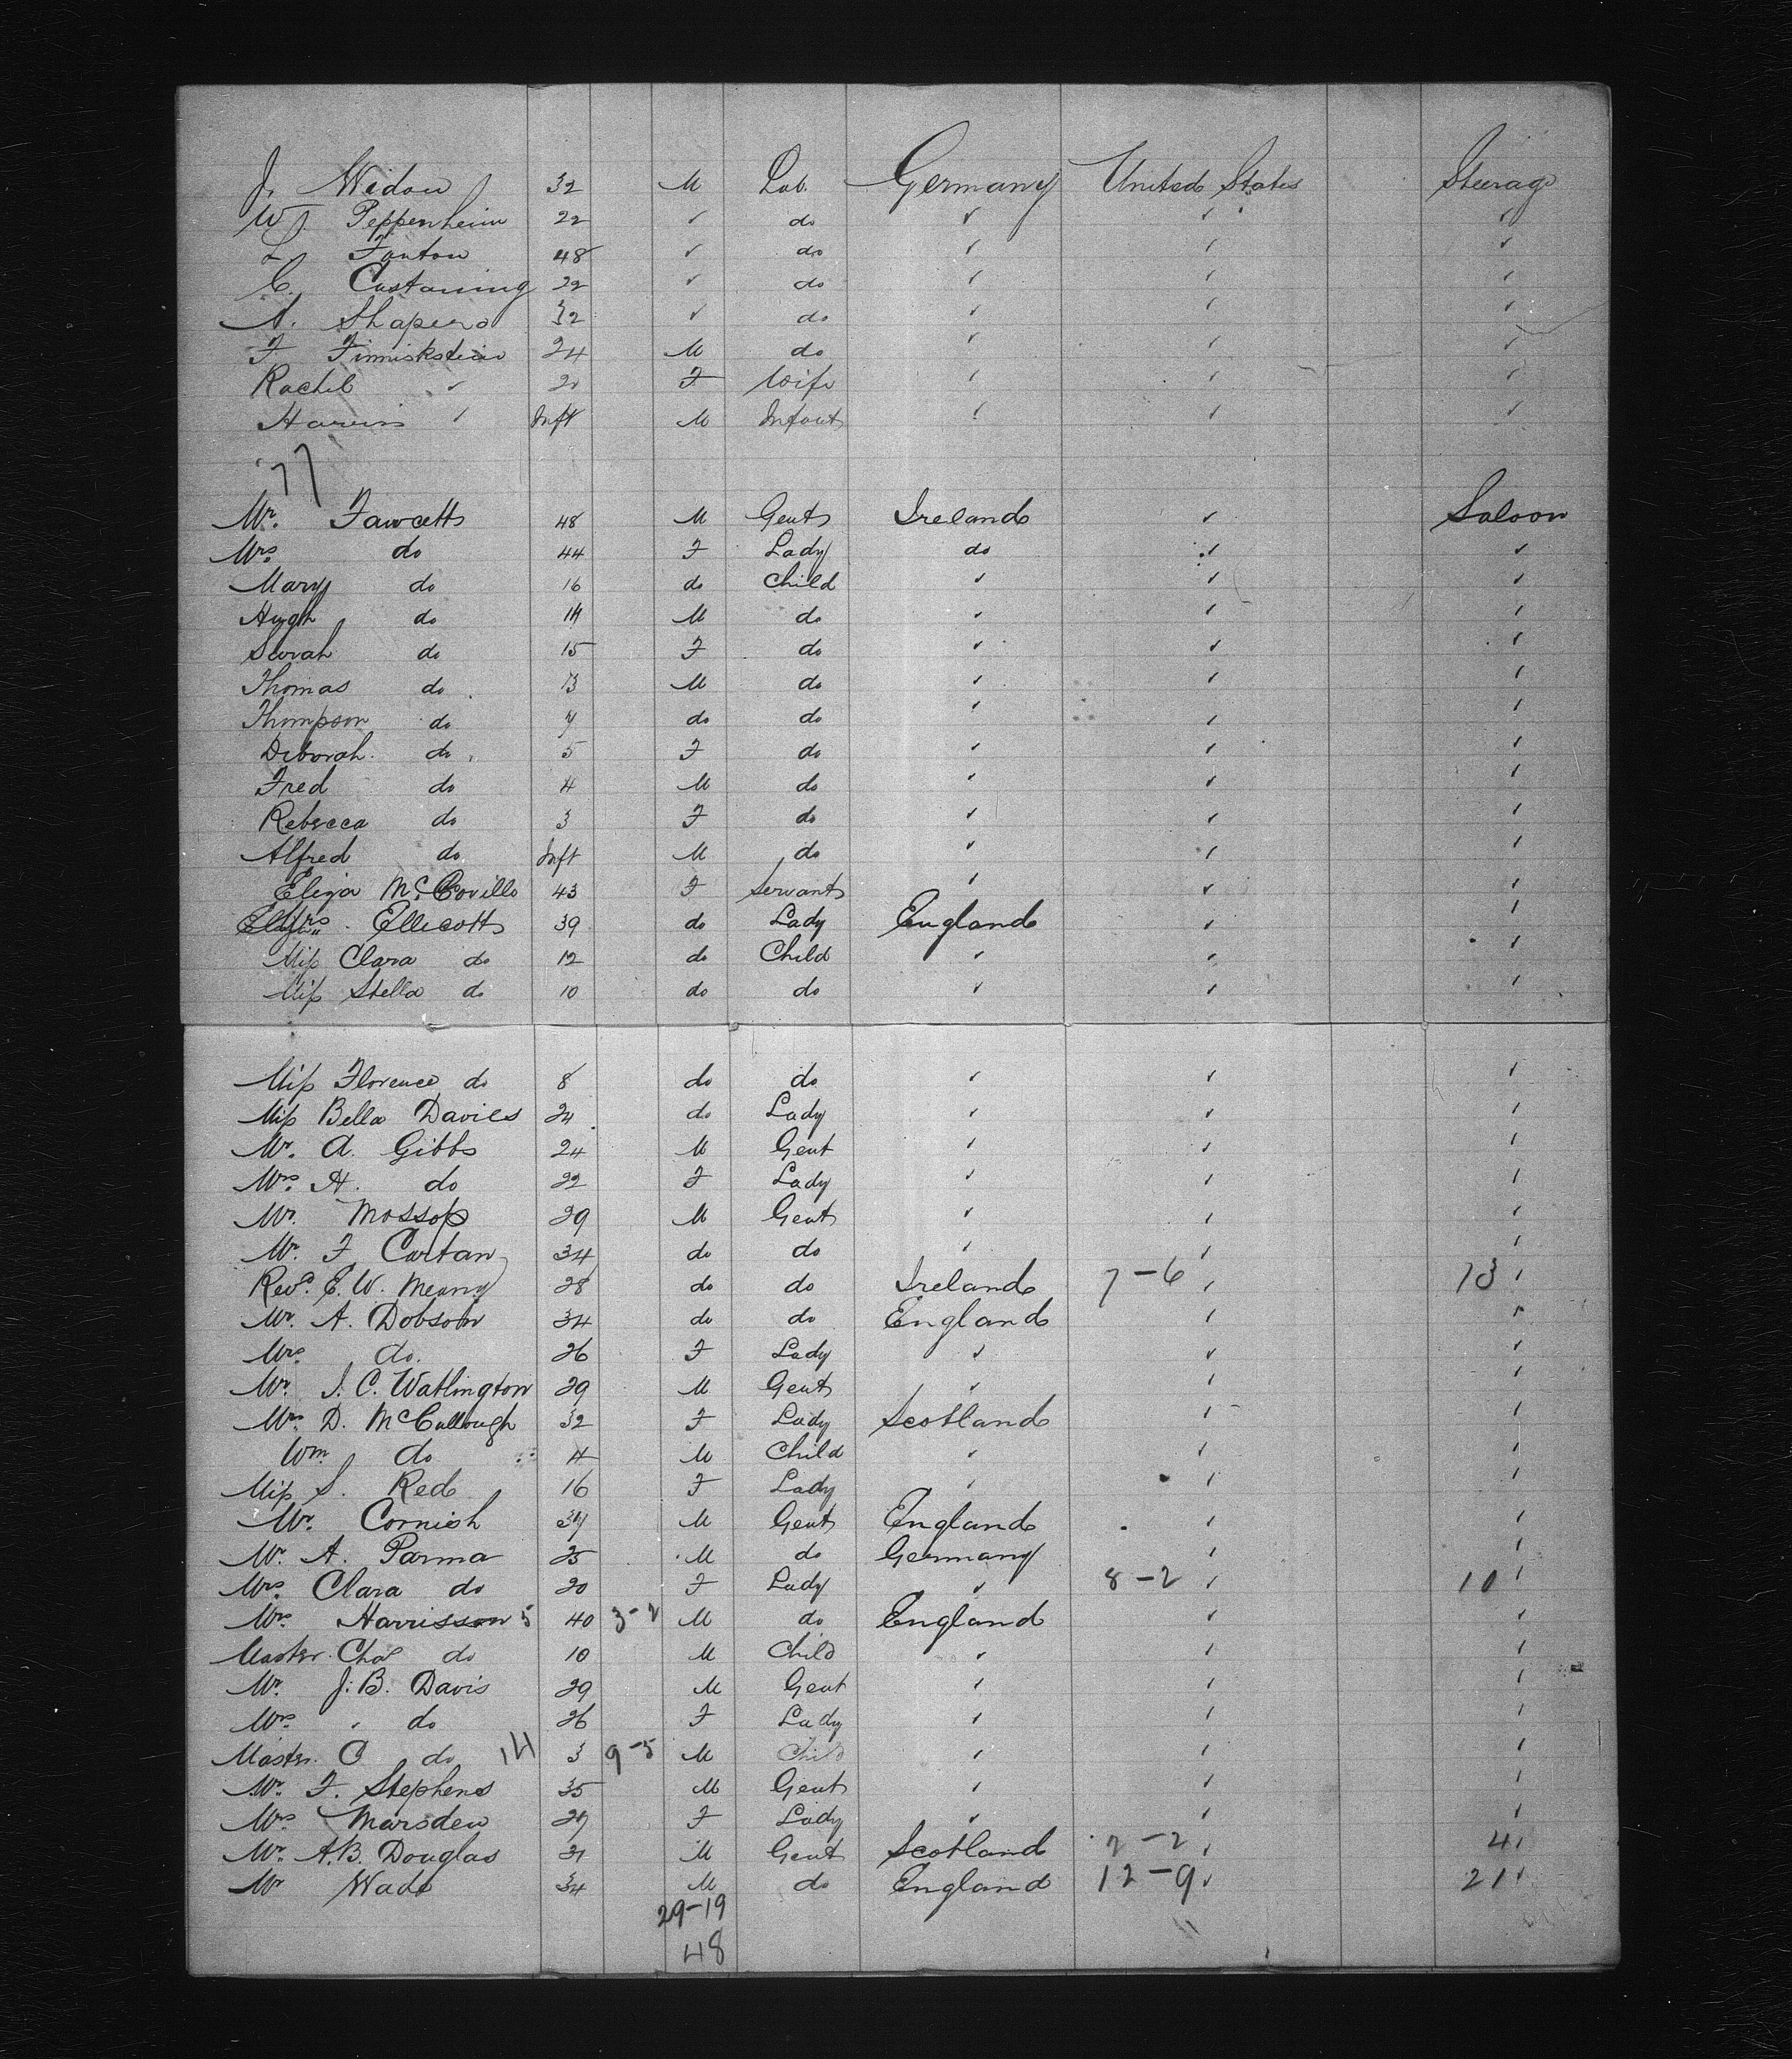 J. Wedow 32 M Lab. Germany United States Steerage
W. Peppenheim 22 ✓ do ✓ ✓ ✓
L Fanton 48 ✓ do ✓ ✓ ✓
C. Castaning 22 ✓ do ✓ ✓ ✓
A. Shapero 32 ✓ do ✓ ✓ ✓
F 24 M do ✓ ✓ ✓
Rachel ✓ 20 F Wife ✓ ✓ ✓
✓ Inft M Infant ✓ ✓ ✓
77
Mr. Fawcett 48 M Gent Ireland ✓ Saloon
Mrs. do 44 F Lady do ✓ ✓
Mary do 16 do Child ✓ ✓ ✓
Hugh do M do ✓ ✓ ✓
Sarah do 15 F do ✓ ✓ ✓
Thomas do 13 M do ✓ ✓ ✓
Thompson do 7 do do ✓ ✓ ✓
Deborah do 5 F do ✓ ✓ ✓
Fred do 4 M do ✓ ✓ ✓
Rebecca do 3 F do ✓ ✓ ✓
Alfred do Inft M do ✓ ✓ ✓
Eliza 43 F Servant ✓ ✓ ✓
Mrs. Ellicott 39 do Lady England ✓ ✓
Miss Clara do 12 do Child ✓ ✓ ✓
Miss Stella do 10 do do ✓ ✓ ✓
Miss Florence do 8 do do ✓ ✓ ✓
Miss Bella Davies 24 do Lady ✓ ✓ ✓
Mr. A. Gibbs 24 M Gent ✓ ✓ ✓
Mrs. H. do 22 F Lady ✓ ✓ ✓
Mr. Mossop 29 M Gent ✓ ✓ ✓
Mr. F Cartan 34 do do ✓ ✓ ✓
Revd. E. W. Meany 28 do do Ireland 7-6 ✓ 13 ✓
Mr. A. Dobson 34 do do England ✓ ✓
Mrs. do. 26 F Lady ✓ ✓ ✓
Mr. J. C. Watlington 29 M Gent ✓ ✓ ✓
Mrs D. McCullough 32 F Lady Scotland ✓ ✓
Wm. do 4 M Child ✓ ✓ ✓
Miss S. Red 16 F Lady ✓ ✓ ✓
Mr. Cornish M Gent England ✓ ✓
Mr. A. Parma 25 M do Germany ✓ ✓
Mrs. Clara do 20 F Lady ✓ 8-2 ✓ 10 ✓
Mrs. Harrisson 5 40 3-2 M do England ✓ ✓
Master. Chas do 10 M Child ✓ ✓ ✓
Mr. J. B. Davis 29 M Gent ✓ ✓ ✓
Mrs. ✓ do 26 F Lady ✓ ✓ ✓
Master. C do 14 3 9-5 M Child ✓ ✓ ✓
Mr. F. Stephens 35 M Gent ✓ ✓ ✓
Mrs. Marsden 27 F Lady ✓ ✓ ✓
Mr. A.B. Douglas 21 M Gent Scotland 2-2 ✓ 4 ✓
Mr Wade 34 M do England 12-9 ✓ 21 ✓
29-19
48